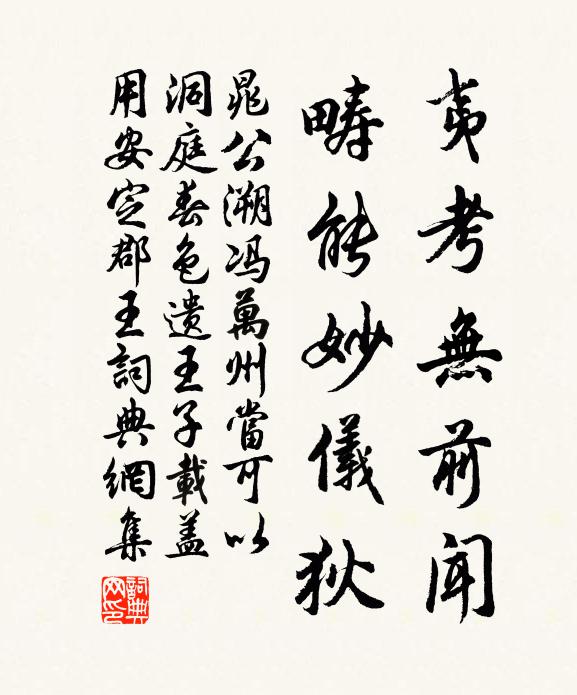 夷考無前聞
疇能妙儀狄
晁公溯馮萬州當可以
洞庭春色遺王子載蓋
用安定郡王詞典網集
詞典網印